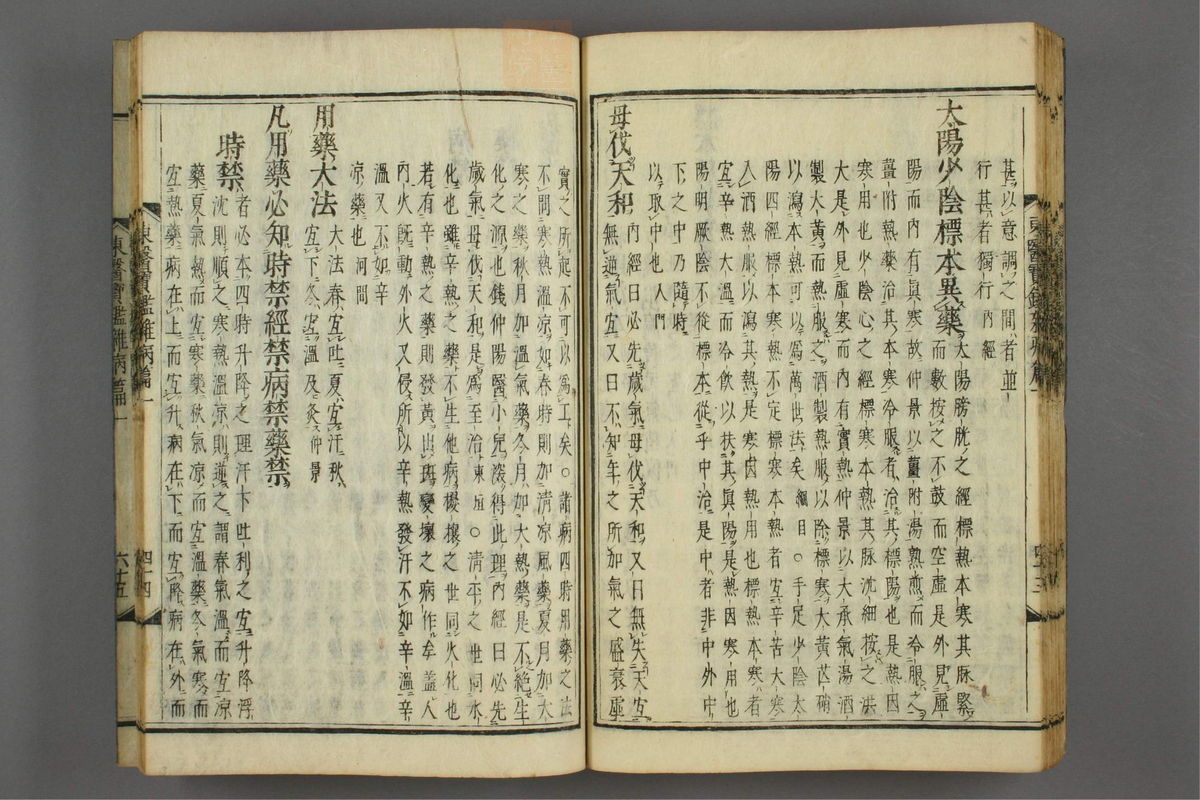 甚者以意調之間者並
行甚者獨行內經
太陽少陰標本異藥 太陽膀胱之經標熱本寒其脉緊
陽而內有眞寒故仲景以薑附湯熱煎而冷服之
薑附熱藥治其本寒冷服者治其標陽也是熱因
寒用也少陰心之經標寒本熱其脉沈細按之洪
大是外見虛寒而內有實熱仲景以大承氣湯酒
製大黃而熱服之酒製熱服以除標寒大黃芒硝
以瀉本熱可以爲萬世法矣綱目○手足少陰太
陽四經標本寒熱不定標寒本熱者宜辛苦大寒
入酒熱服以瀉其熱是寒因熱用也標熱本寒者
宜辛熱大溫而冷飮以扶其眞陽是熱因寒用也
陽明厥陰不從標本從乎中治是中者非中外中
下之中乃隨時
以取中也入門
毋伐天和 內經曰必先歲氣毋伐天和又曰無失天宜
無逆氣宜又曰不知年之所加氣之盛衰虛
實之所起不可以爲工矣○諸病四時用藥之法
不問寒熱溫凉如春時則加淸凉風藥夏月加大
寒之藥秋月加溫氣藥冬月加大熱藥是不絶生
化之源也錢仲陽醫小兒深得此理內經曰必先
歲氣毋伐天和是爲至治東垣○淸平之世同水
化也雖辛熱之藥不生他病擾攘之世同火化也
若有辛熱之藥則發黃出斑變壞之病作矣盖人
內火旣動外火又侵所以辛熱發汗不如辛溫辛
溫又不如辛
凉藥也河間
用藥大法 大法春宜吐夏宜汗秋
宜下冬宜溫及灸仲景
凡用藥必知時禁經禁病禁藥禁
時禁 者必本四時升降之理汗下吐利之宜升降浮
沈則順之寒熱溫凉則逆之謂春氣溫而宜凉
藥夏氣熱而宜寒藥秋氣凉而宜溫藥冬氣寒而
宜熱藥病在上而宜升病在下而宜降病在外而
東醫寶鑑雜病篇一
四十四
六十五